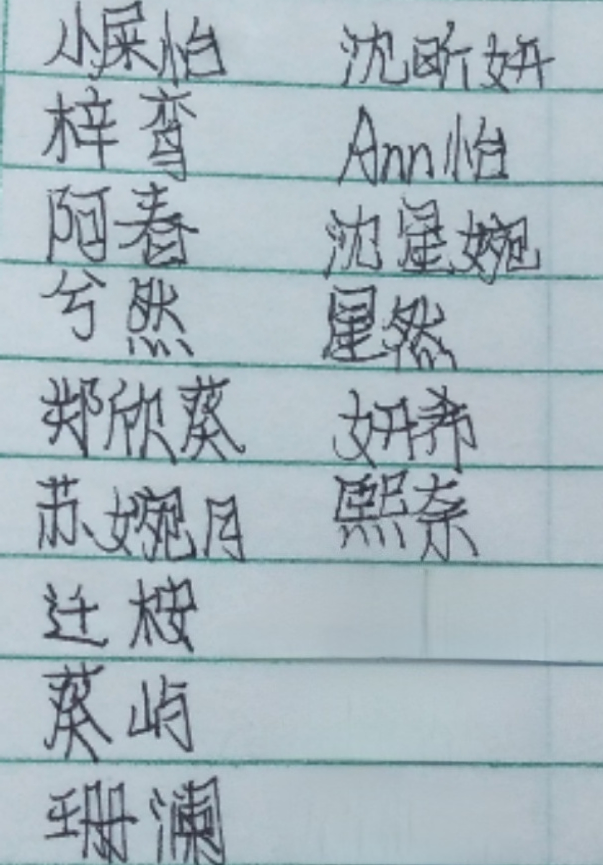 小屎怡 沈昕妍
梓鸾 Ann怡
阿春 沈星婉
兮然 星然
郑欣葵 妍希
苏婉月 熙奈
迁桉
葵屿
珊澜